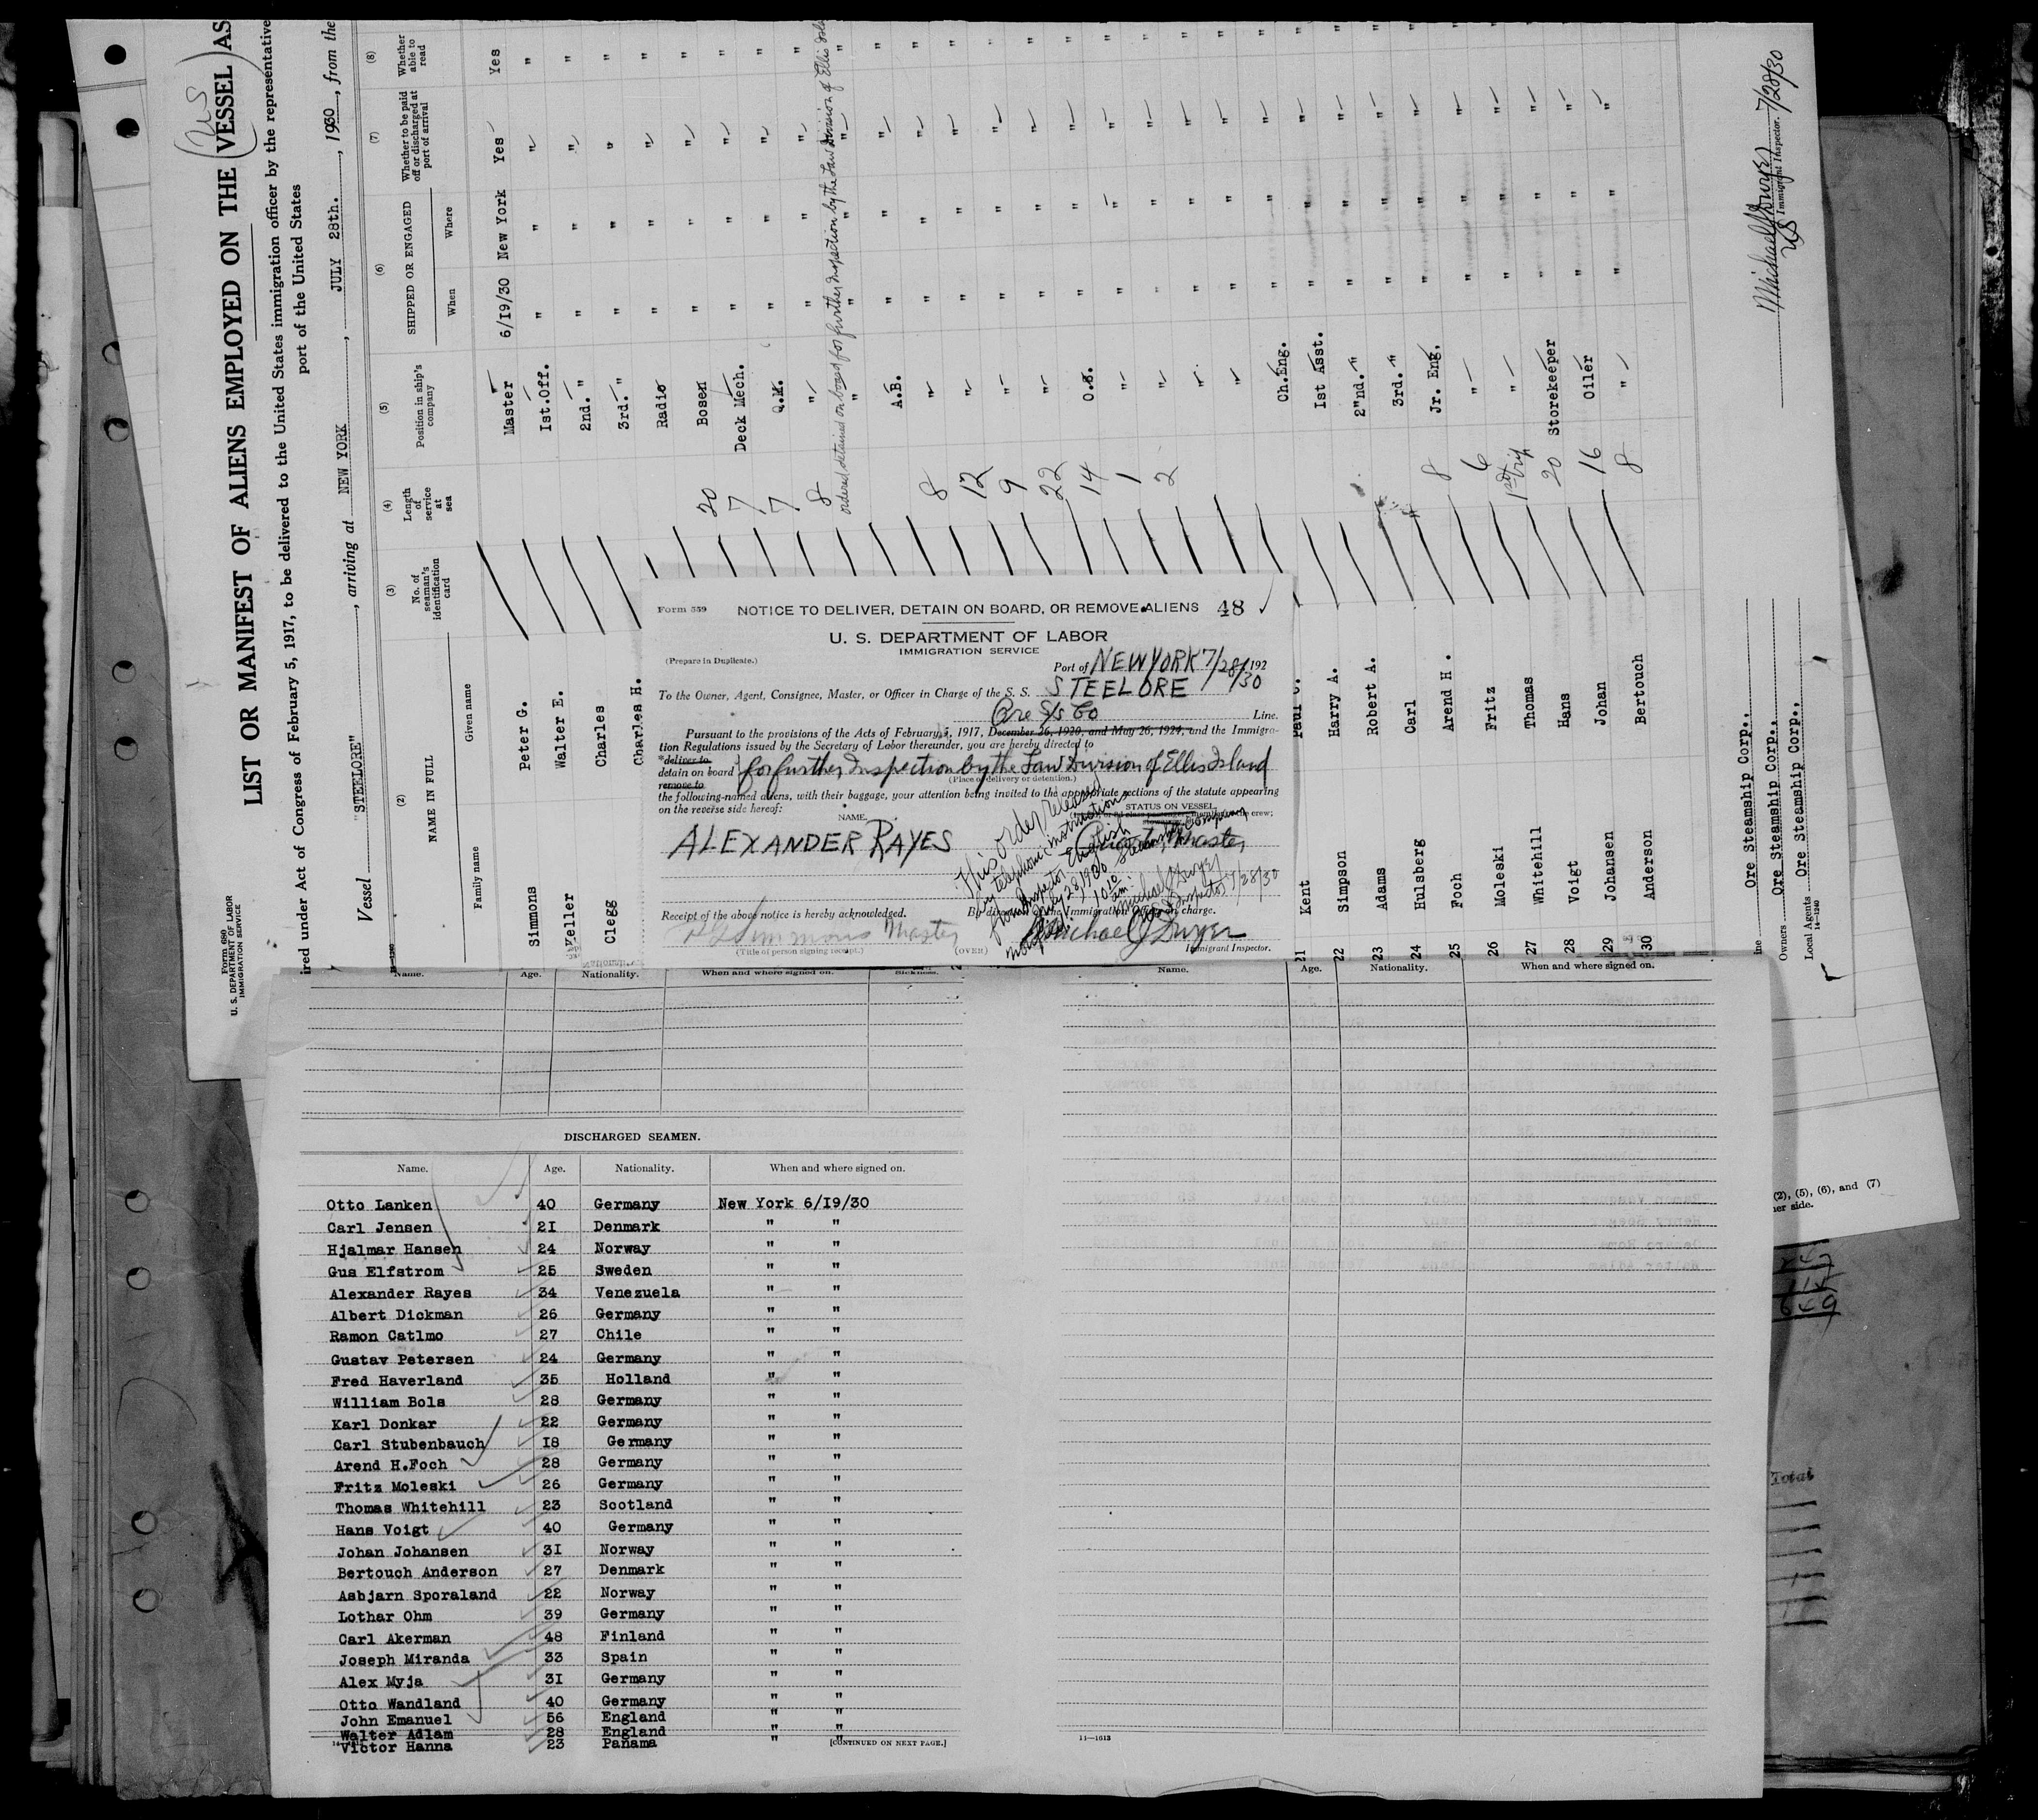 Form 680
U. S. DEPARTMENT OF LABOR
IMMIGRATION SERVICE
LIST OR MANIFEST OF ALIENS EMPLOYED ON THE VESSEL AS
ired under Act of Congress of February 5, 1917, to be delivered to the United States immigration officer by the representative
port of the United States
Vessel "STEELORE", arriving at NEW YORK, JULY 28th., 1930, from the
(2) (3) (4) (5) (6) (7) (8)
NAME IN FULL
Family name Given name
No. of seaman's identification card
Length of service at sea
Position in ship's company
SHIPPED OR ENGAGED
When Where
Whether to be paid off or discharged at port of arrival
Whether able to read
Simmons Peter G. Master 6/19/30 New York Yes Yes
Keller Walter E. 1st.Off. " " " "
Clegg Charles 2nd. " " " " "
Charles H. 3rd. " " " " "
Radio " " " "
20 Bosen " " " "
7 Deck Mech. " " " "
7 Q.M. " " " "
8 " " " " "
ordered detained on board for further inspection by the Law Division of Ellis
" " " " "
A.B. " " " "
8 " " " " "
12 " " " " "
9 " " " " "
22 " " " " "
14 O.S. " " " "
1 " " " " "
2 " " " " "
" " " " "
" " " " "
21 Kent Ch.Eng. " " " "
22 Simpson Harry A. 1st Asst. " " " "
23 Adams Robert A. 2"nd. " " " " "
24 Hulsberg Carl 3rd. " " " " "
25 Foch Arend H. 8 Jr. Eng. " " " "
26 Moleski Fritz 6 " " " " "
27 Whitehill Thomas 1st trip " " " " "
28 Voigt Hans 20 Storekeeper " " " "
29 Johansen Johan 16 Oiler " " " "
30 Anderson Bertouch 8 " " " " "
Line Ore Steamship Corp.,
Owners Ore Steamship Corp.,
Local Agents Ore Steamship Corp.,
14-1240
Michael J Dwyer 7/28/30
US Immigrant Inspector.
Form 559 NOTICE TO DELIVER, DETAIN ON BOARD, OR REMOVE ALIENS 48
U. S. DEPARTMENT OF LABOR
IMMIGRATION SERVICE
(Prepare in Duplicate.)
Port of NEW YORK 7/28/30 192
To the Owner, Agent, Consignee, Master, or Officer in Charge of the S. S. STEELORE
Ore S/S Co Line.
Pursuant to the provisions of the Acts of February 5, 1917, December 26, 1920, and May 26, 1924, and the Immigra-
tion Regulations issued by the Secretary of Labor thereunder, you are hereby directed to
*deliver to
detain on board for further Inspection by the Law Division of Ellis Island
remove to
(Place of delivery or detention.)
the following-named aliens, with their baggage, your attention being invited to the appropriate sections of the statute appearing
on the reverse side hereof:
NAME. STATUS ON VESSEL
ALEXANDER RAYES
This order released
by telephone instructions
from Inspector English
July 28, 1930 10 10 am.
Michael J Dwyer
Inspector 7/28/30
Receipt of the above notice is hereby acknowledged.
By direction of the Immigration Officer in charge.
P G Simmons Master
Michael J Dwyer
(Title of person signing receipt.) (OVER) Immigrant Inspector.
Name. Age. Nationality. When and where signed on. Sickness.
Name. Age. Nationality. When and where signed on.
DISCHARGED SEAMEN.
Name. Age. Nationality. When and where signed on.
Otto Lanken 40 Germany New York 6/19/30
Carl Jensen 21 Denmark " "
Hjalmar Hansen 24 Norway " "
Gus Elfstrom 25 Sweden " "
Alexander Rayes 34 Venezuela " "
Albert Dickman 26 Germany " "
Ramon Catlmo 27 Chile " "
Gustav Petersen 24 Germany " "
Fred Haverland 35 Holland " "
William Bols 28 Germany " "
Karl Donkar 22 Germany " "
Carl Stubenbauch 18 Germany " "
Arend H.Foch 28 Germany " "
Fritz Moleski 26 Germany " "
Thomas Whitehill 23 Scotland " "
Hans Voigt 40 Germany " "
Johan Johansen 31 Norway " "
Bertouch Anderson 27 Denmark " "
Asbjarn Sporaland 22 Norway " "
Lothar Ohm 39 Germany " "
Carl Akerman 48 Finland " "
Joseph Miranda 33 Spain " "
Alex Myja 31 Germany " "
Otto Wandland 40 Germany " "
John Emanuel 56 England " "
Walter Adlam 28 England " "
Victor Hanna 23 Panama " "
[CONTINUED ON NEXT PAGE.]
11—1613
(2), (5), (6), and (7)
her side.
649
Total